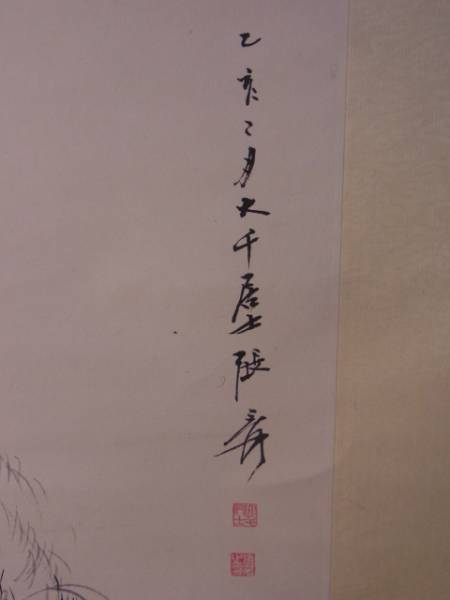 乙亥二月大千居士張爰